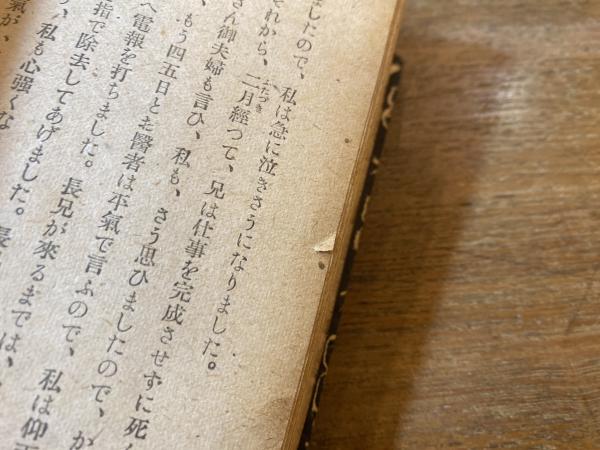 ましたので、私は急に泣きさうになりました。
それから、二月經つて、兄は仕事を完成させずに死
ふたつき
さん御夫婦も言ひ、私も、さう思ひましたので、か
、もう四五日と老醫者は平氣で言ふので、私は仰
へ電報を打ちました。長兄が來るまでは、
指で除去してあげました。長
、私も心強くな
氣が、